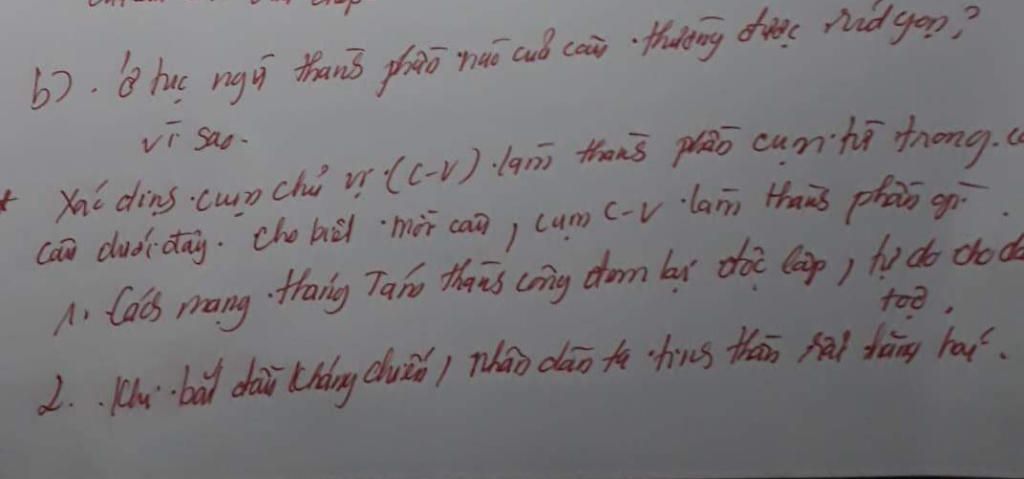 b). Ở tục ngữ thành phần nào của câu thường được rút gọn?
vì sao.
* Xác định cụm chủ vị (C-V) làm thành phần cụm từ trong
câu dưới đây. Cho biết mỗi câu, cụm C-V làm thành phần gì.
1. Cách mạng tháng Tám thành công đem lại độc lập, tự do cho
2. Khi bắt đầu kháng chiến, nhân dân ta tinh thần rất hăng hái.